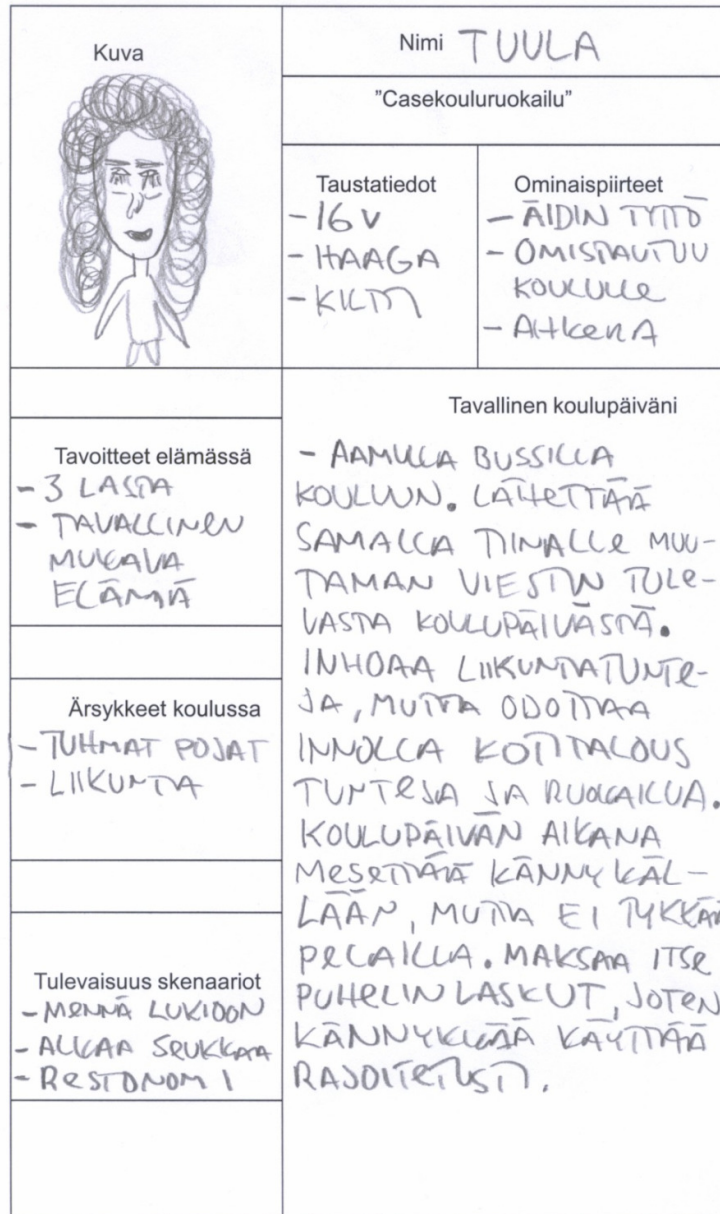 Kuva
Nimi TUULA
"Casekouluruokailu"
Taustatiedot
- 16 V
- HAAGA
- KILTTI
Ominaispiirteet
- ÄIDIN TYTTÖ
- OMISTAUTUU
KOULULLE
- AHKERA
Tavoitteet elämässä
- 3 LASTA
- TAVALLINEN
MUKAVA
ELÄMÄ
Ärsykkeet koulussa
- TUHMAT POJAT
- LIIKUNTA
Tulevaisuus skenaariot
- MENNÄ LUKIOON
- ALKAA SEUKKAA
- RESTONOMI
Tavallinen koulupäiväni
- AAMULLA BUSSILLA
KOULUUN. LÄHETTÄÄ
SAMALLA TIINALLE MUU-
TAMAN VIESTIN TULE-
VASTA KOULUPÄIVÄSTÄ.
INHOAA LIIKUNTATUNTE-
JA, MUTTA ODOTTAA
INNOLLA KOTITALOUS
TUNTEJA JA RUOKAILUA.
KOULUPÄIVÄN AIKANA
MESETTÄÄ KÄNNYKÄL-
LÄÄN, MUTTA EI TYKKÄÄ
PELAILLA. MAKSAA ITSE
PUHELINLASKUT, JOTEN
KÄNNYKKÄÄ KÄYTTÄÄ
RAJOITETUSTI.